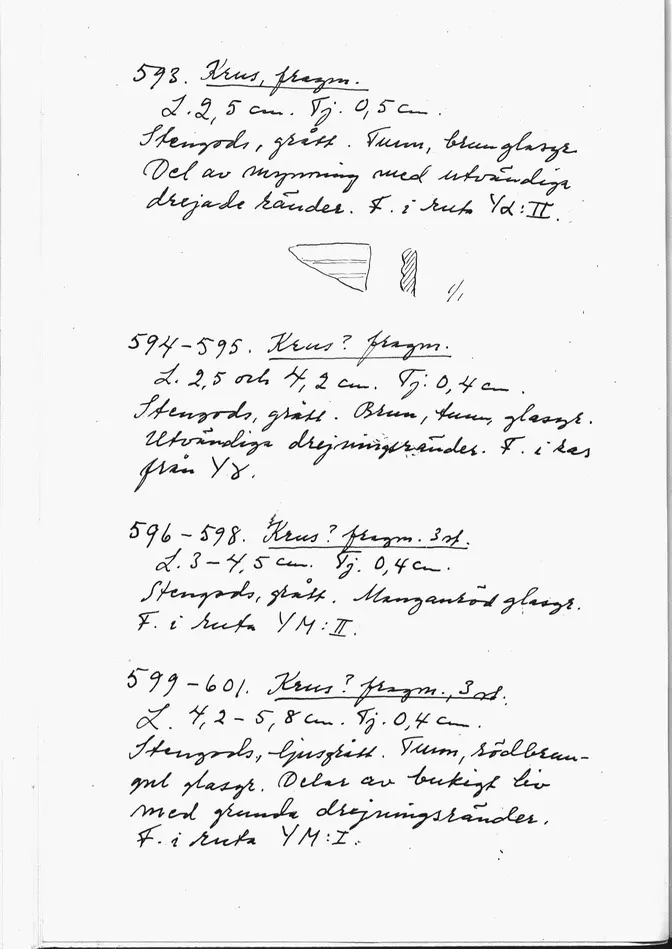 593. Krus, fragm.
L. 2,5 cm. Tj. 0,5 cm.
Stengods, grått. Tunn, brun glasyr
Del av mynning med utvändiga
drejade ränder. F. i ruta Yα:II.
1/1
594-595. Krus? fragm.
L. 2,5 och 4,2 cm. Tj. 0,4 cm.
Stengods, grått. Brun, tunn, glasyr.
Utvändiga drejningsränder. F. i kas
från Yγ.
596-598. Krus? fragm. 3 st.
L. 3-4,5 cm. Tj. 0,4 cm.
Stengods, grått. Manganröd glasyr.
F. i ruta YM:II.
599-601. Krus? fragm., 3 st.
L. 4,2-5,8 cm. Tj. 0,4 cm.
Stengods, ljusgrått. Tunn, rödbrun-
gul glasyr. Delar av bukigt liv
med grunda drejningsränder.
F. i ruta YM:I.